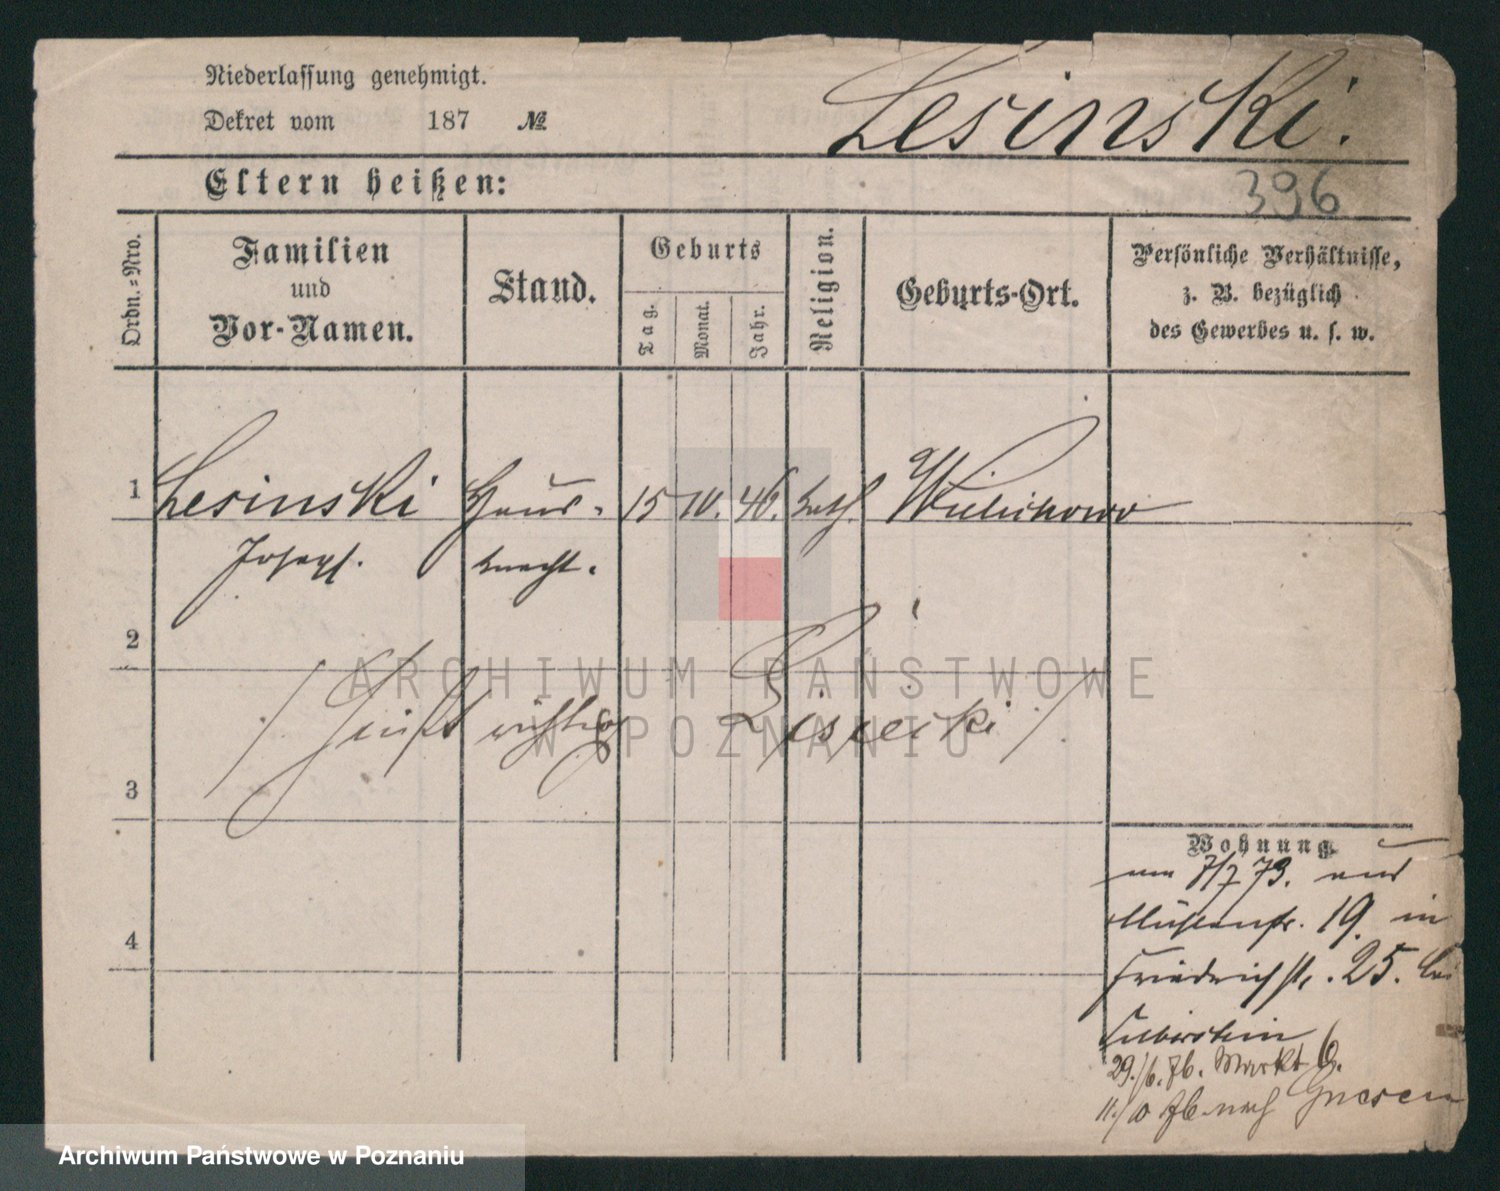 Niederlassung genehmigt.
Dekret vom 187 №
Lesinski.
Eltern heißen:
396
Ordn.-Nro.
Familien
und
Vor-Namen.
Stand.
Geburts
Tag.
Monat.
Jahr.
Religion.
Geburts-Ort.
Persönliche Verhältnisse,
z. B. bezüglich
des Gewerbes u. s. w.
1 Lesinski Haus- 15 10. 46. kath. Wielichowo
Joseph. knecht.
2
/ heißt richtig Lisiecki /
3
Wohnung
7/7 73.
Mühlenstr. 19. in
Friedrichstr. 25. bei
4
29./6. 76. Markt 6.
11./10 76 nach Gnesen
ARCHIWUM PAŃSTWOWE
W POZNANIU
Archiwum Państwowe w Poznaniu